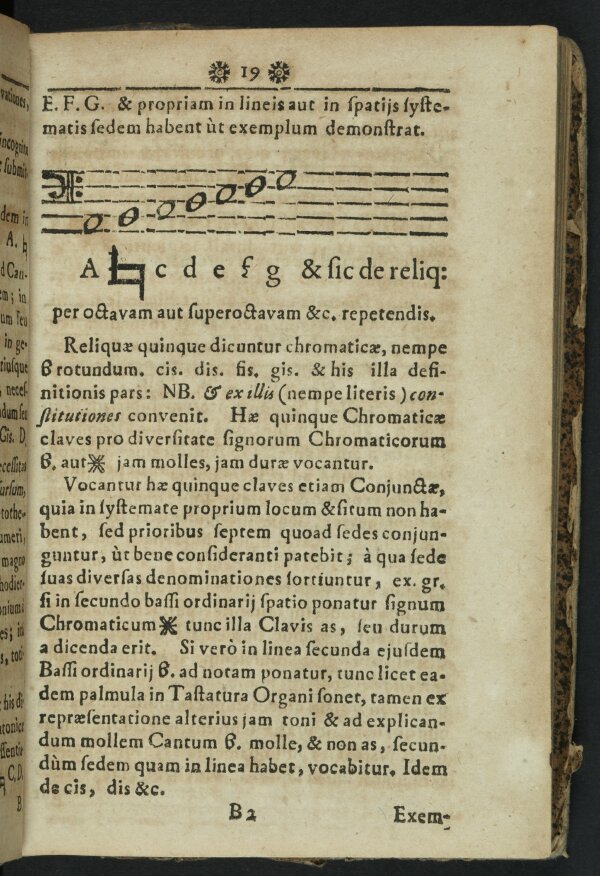 19
E. F. G. & propriam in lineis aut in ſpatijs ſyſte-
matis ſedem habent ùt exemplum demonſtrat.
A ♮ c d e f g & ſic de reliq:
per octavam aut ſuperoctavam &c. repetendis.
Reliquæ quinque dicuntur chromaticæ, nempe
♭ rotundum. cis. dis. fis. gis. & his illa defi-
nitionis pars: NB. & ex illis (nempe literis) con-
ſtitutiones convenit. Hæ quinque Chromaticæ
claves pro diverſitate ſignorum Chromaticorum
♭. aut ※ jam molles, jam duræ vocantur.
Vocantur hæ quinque claves etiam Conjunctæ,
quia in ſyſtemate proprium locum & ſitum non ha-
bent, ſed prioribus ſeptem quoad ſedes conjun-
guntur, ùt bene conſideranti patebit; à qua ſede
ſuas diverſas denominationes ſortiuntur, ex. gr.
ſi in ſecundo baſſi ordinarij ſpatio ponatur ſignum
Chromaticum ※ tunc illa Clavis as, ſeu durum
a dicenda erit. Si verò in linea ſecunda ejuſdem
Baſſi ordinarij ♭. ad notam ponatur, tunc licet ea-
dem palmula in Taſtatura Organi ſonet, tamen ex
repræſentatione alterius jam toni & ad explican-
dum mollem Cantum ♭. molle, & non as, ſecun-
dùm ſedem quam in linea habet, vocabitur. Idem
de cis, dis &c.
B 2 Exem-
vationes,
incognita
ſubmiſ-
dem in
A. ♮
d Can-
em; in
um ſeu
in ge-
tiuſque
neceſ-
dum ſeu
Gis. D
ceſſitas
ſurſum,
tothe-
umeri,
magno
hodier-
es; in
his di-
tonicæ
C, D,
B